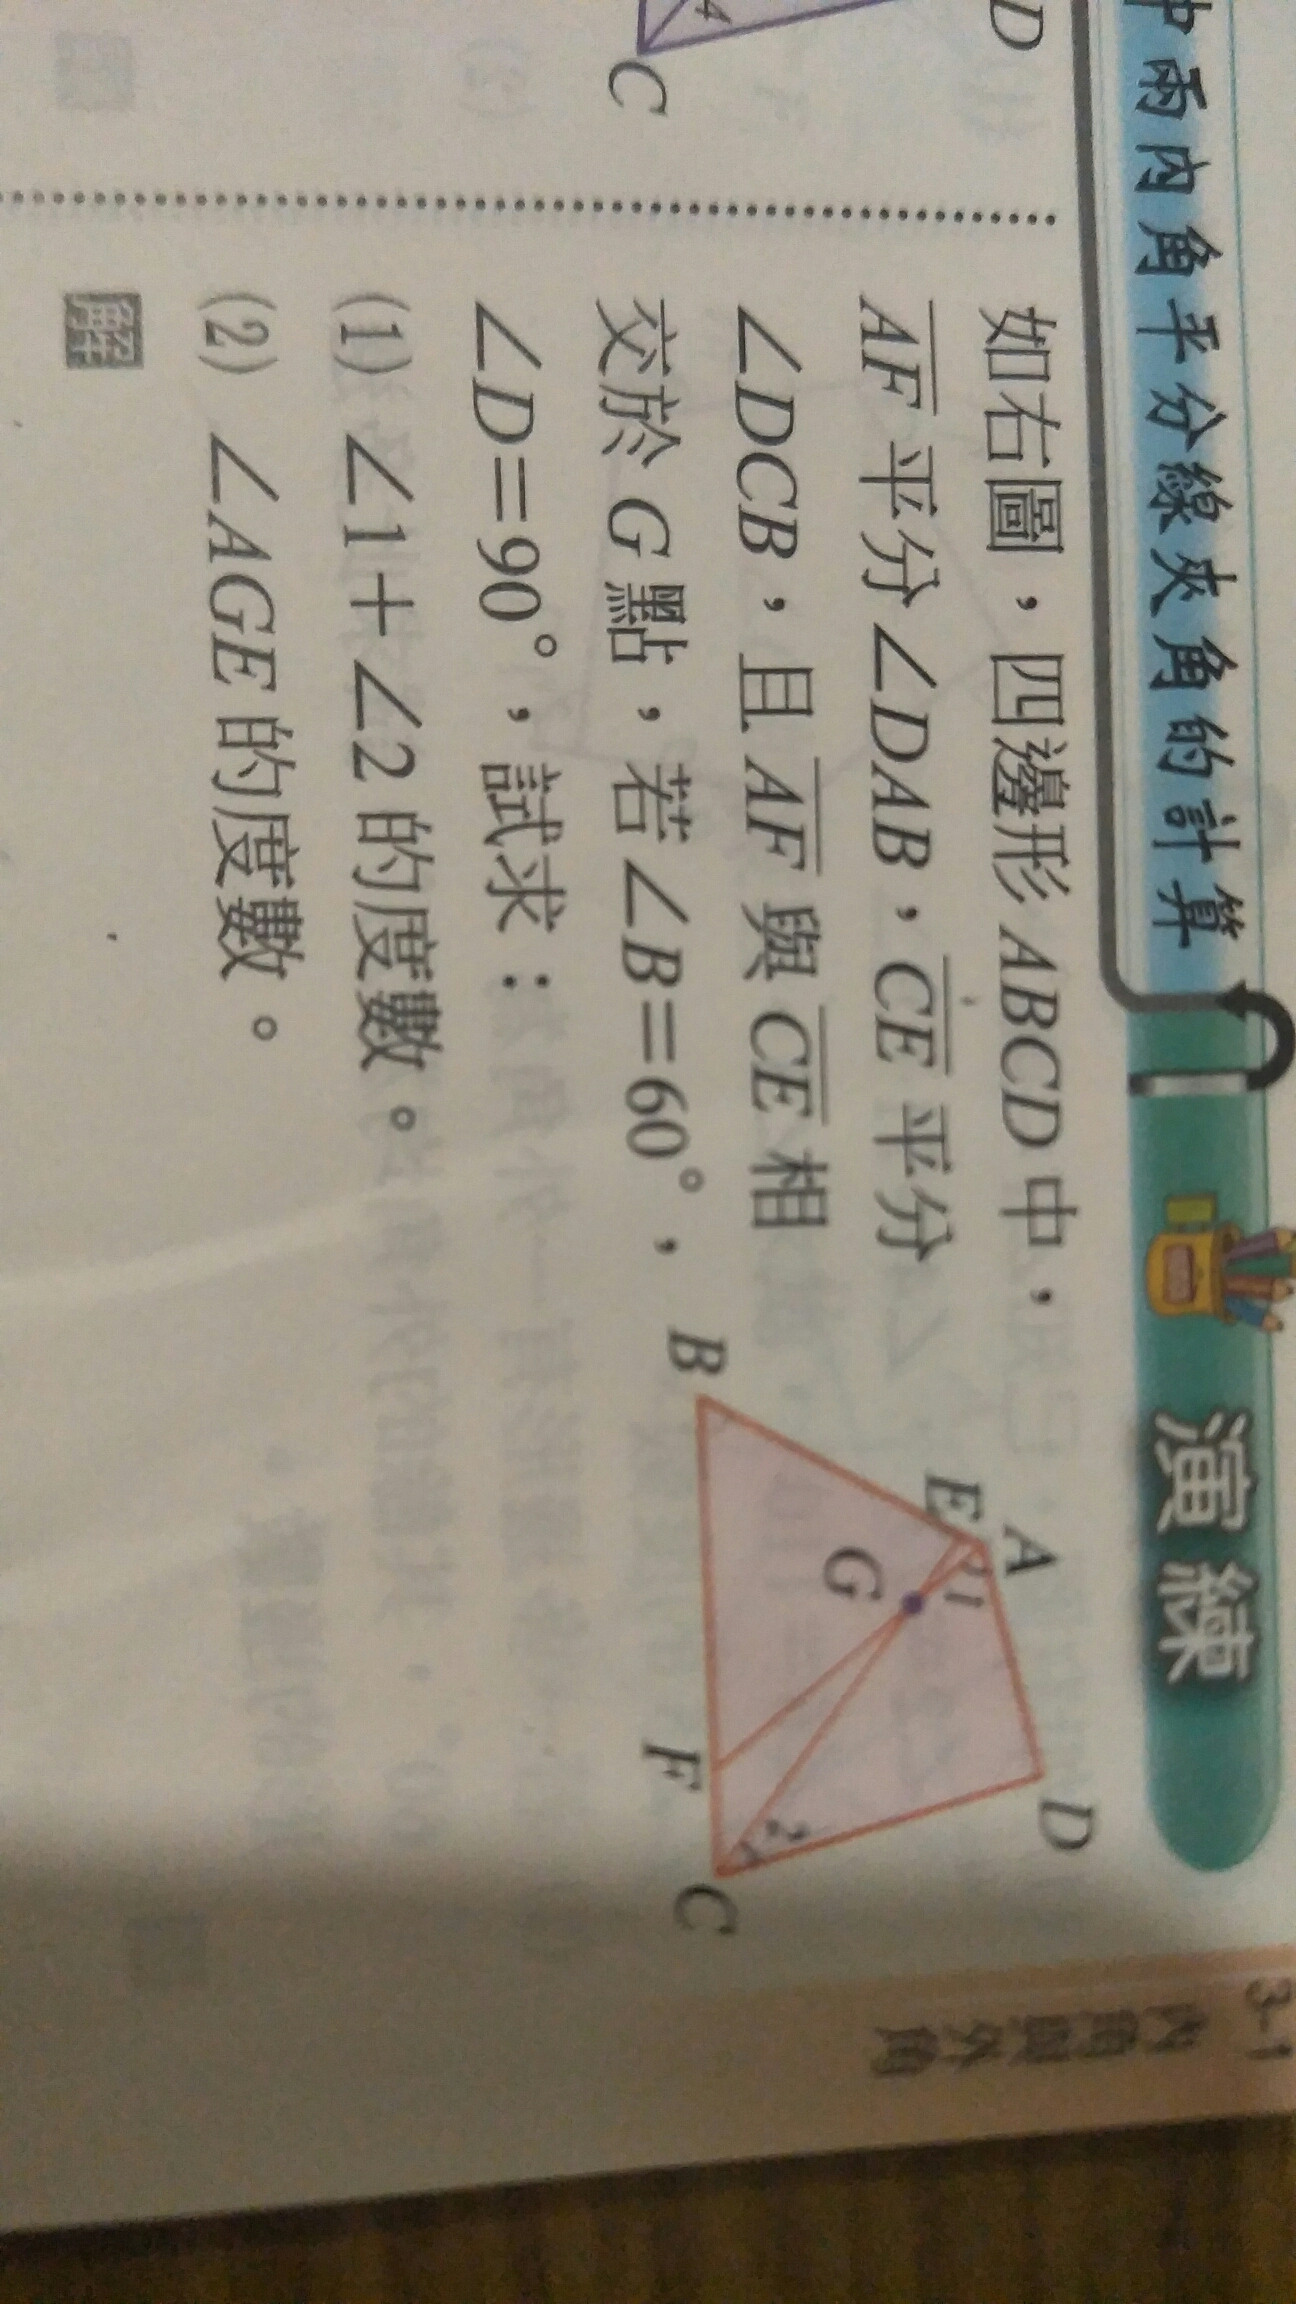 中兩內角平分線夾角的計算
演練
D
4
C
如右圖，四邊形 ABCD 中，
AF 平分 ∠DAB，CE 平分
∠DCB，且 AF 與 CE 相
交於 G 點，若 ∠B＝60°，
∠D＝90°，試求：
(1) ∠1＋∠2 的度數。
(2) ∠AGE 的度數。
解
A
D
E
1
G
2
B
F
C
3-1
內角與外角